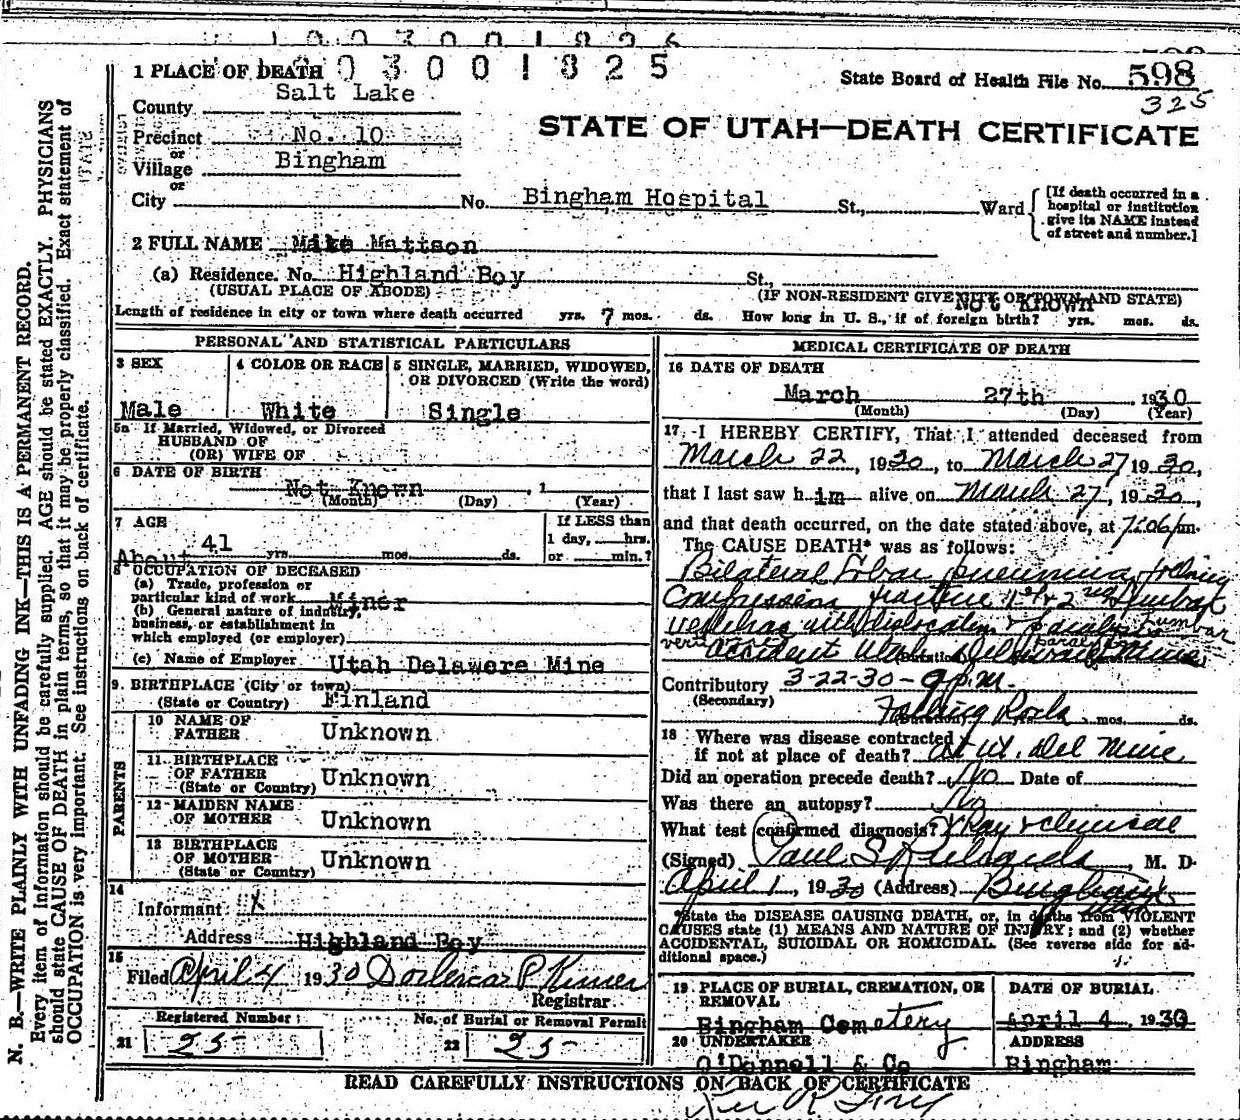 0 0 3 0 0 1 8 2 6
0 3 0 0 1 8 2 5
1 PLACE OF DEATH
State Board of Health File No. 598
325
County Salt Lake
STATE OF UTAH—DEATH CERTIFICATE
Precinct No. 10
or
Village Bingham
or
City No. Bingham Hospital St., Ward
[If death occurred in a
hospital or institution
give its NAME instead
of street and number.]
2 FULL NAME Mike Mattson
(a) Residence. No. Highland Boy St.,
(USUAL PLACE OF ABODE) (IF NON-RESIDENT GIVE CITY OR TOWN AND STATE)
Not Known
Length of residence in city or town where death occurred yrs. 7 mos. ds. How long in U. S., if of foreign birth? yrs. mos. ds.
PERSONAL AND STATISTICAL PARTICULARS
3 SEX
Male
4 COLOR OR RACE
White
5 SINGLE, MARRIED, WIDOWED,
OR DIVORCED (Write the word)
Single
5a If Married, Widowed, or Divorced
HUSBAND OF
(OR) WIFE OF
6 DATE OF BIRTH
Not Known , 1
(Month) (Day) (Year)
7 AGE
About 41 yrs. mos. ds.
If LESS than
1 day, hrs.
or min.?
8 OCCUPATION OF DECEASED
(a) Trade, profession or
particular kind of work Miner
(b) General nature of industry,
business, or establishment in
which employed (or employer)
(c) Name of Employer Utah Delawere Mine
9. BIRTHPLACE (City or town)
(State or Country) Finland
PARENTS
10 NAME OF
FATHER Unknown
11. BIRTHPLACE
OF FATHER Unknown
(State or Country)
12 MAIDEN NAME
OF MOTHER Unknown
13 BIRTHPLACE
OF MOTHER Unknown
(State or Country)
14
Informant X
Address Highland Boy
15
Filed April 4 1930
Registrar
Registered Number
21 25
No. of Burial or Removal Permit
22 25
MEDICAL CERTIFICATE OF DEATH
16 DATE OF DEATH
March 27th , 1930
(Month) (Day) (Year)
17 I HEREBY CERTIFY, That I attended deceased from
March 22, 1930, to March 27 1930,
that I last saw him alive on March 27, 1930,
and that death occurred, on the date stated above, at 7:06 pm.
The CAUSE DEATH* was as follows:
Bilateral Lobar pneumonia folowing
Compression fracture 1st & 2nd Lumbar
vertebrae with dislocation & paralysis Lumbar
accident Utah Delaware Mine
(Duration)
Contributory 3-22-30-9 p.m.
(Secondary)
Falling Rock mos. ds.
18 Where was disease contracted
if not at place of death? At Ut. Del Mine
Did an operation precede death? No Date of
Was there an autopsy? No
What test confirmed diagnosis? X Ray & clinical
(Signed) Paul S Richards, M. D.
April 1, 1930 (Address) Bingham
*State the DISEASE CAUSING DEATH, or, in deaths from VIOLENT
CAUSES state (1) MEANS AND NATURE OF INJURY; and (2) whether
ACCIDENTAL, SUICIDAL OR HOMICIDAL. (See reverse side for ad-
ditional space.)
19 PLACE OF BURIAL, CREMATION, OR
REMOVAL
Bingham Cemetery
DATE OF BURIAL
April 4, 1930
20 UNDERTAKER
O'Donnell & Co
ADDRESS
Bingham
READ CAREFULLY INSTRUCTIONS ON BACK OF CERTIFICATE
N. B.—WRITE PLAINLY WITH UNFADING INK—THIS IS A PERMANENT RECORD.
Every item of information should be carefully supplied. AGE should be stated EXACTLY. PHYSICIANS
should state CAUSE OF DEATH in plain terms, so that it may be properly classified. Exact statement of
OCCUPATION is very important. See instructions on back of certificate.